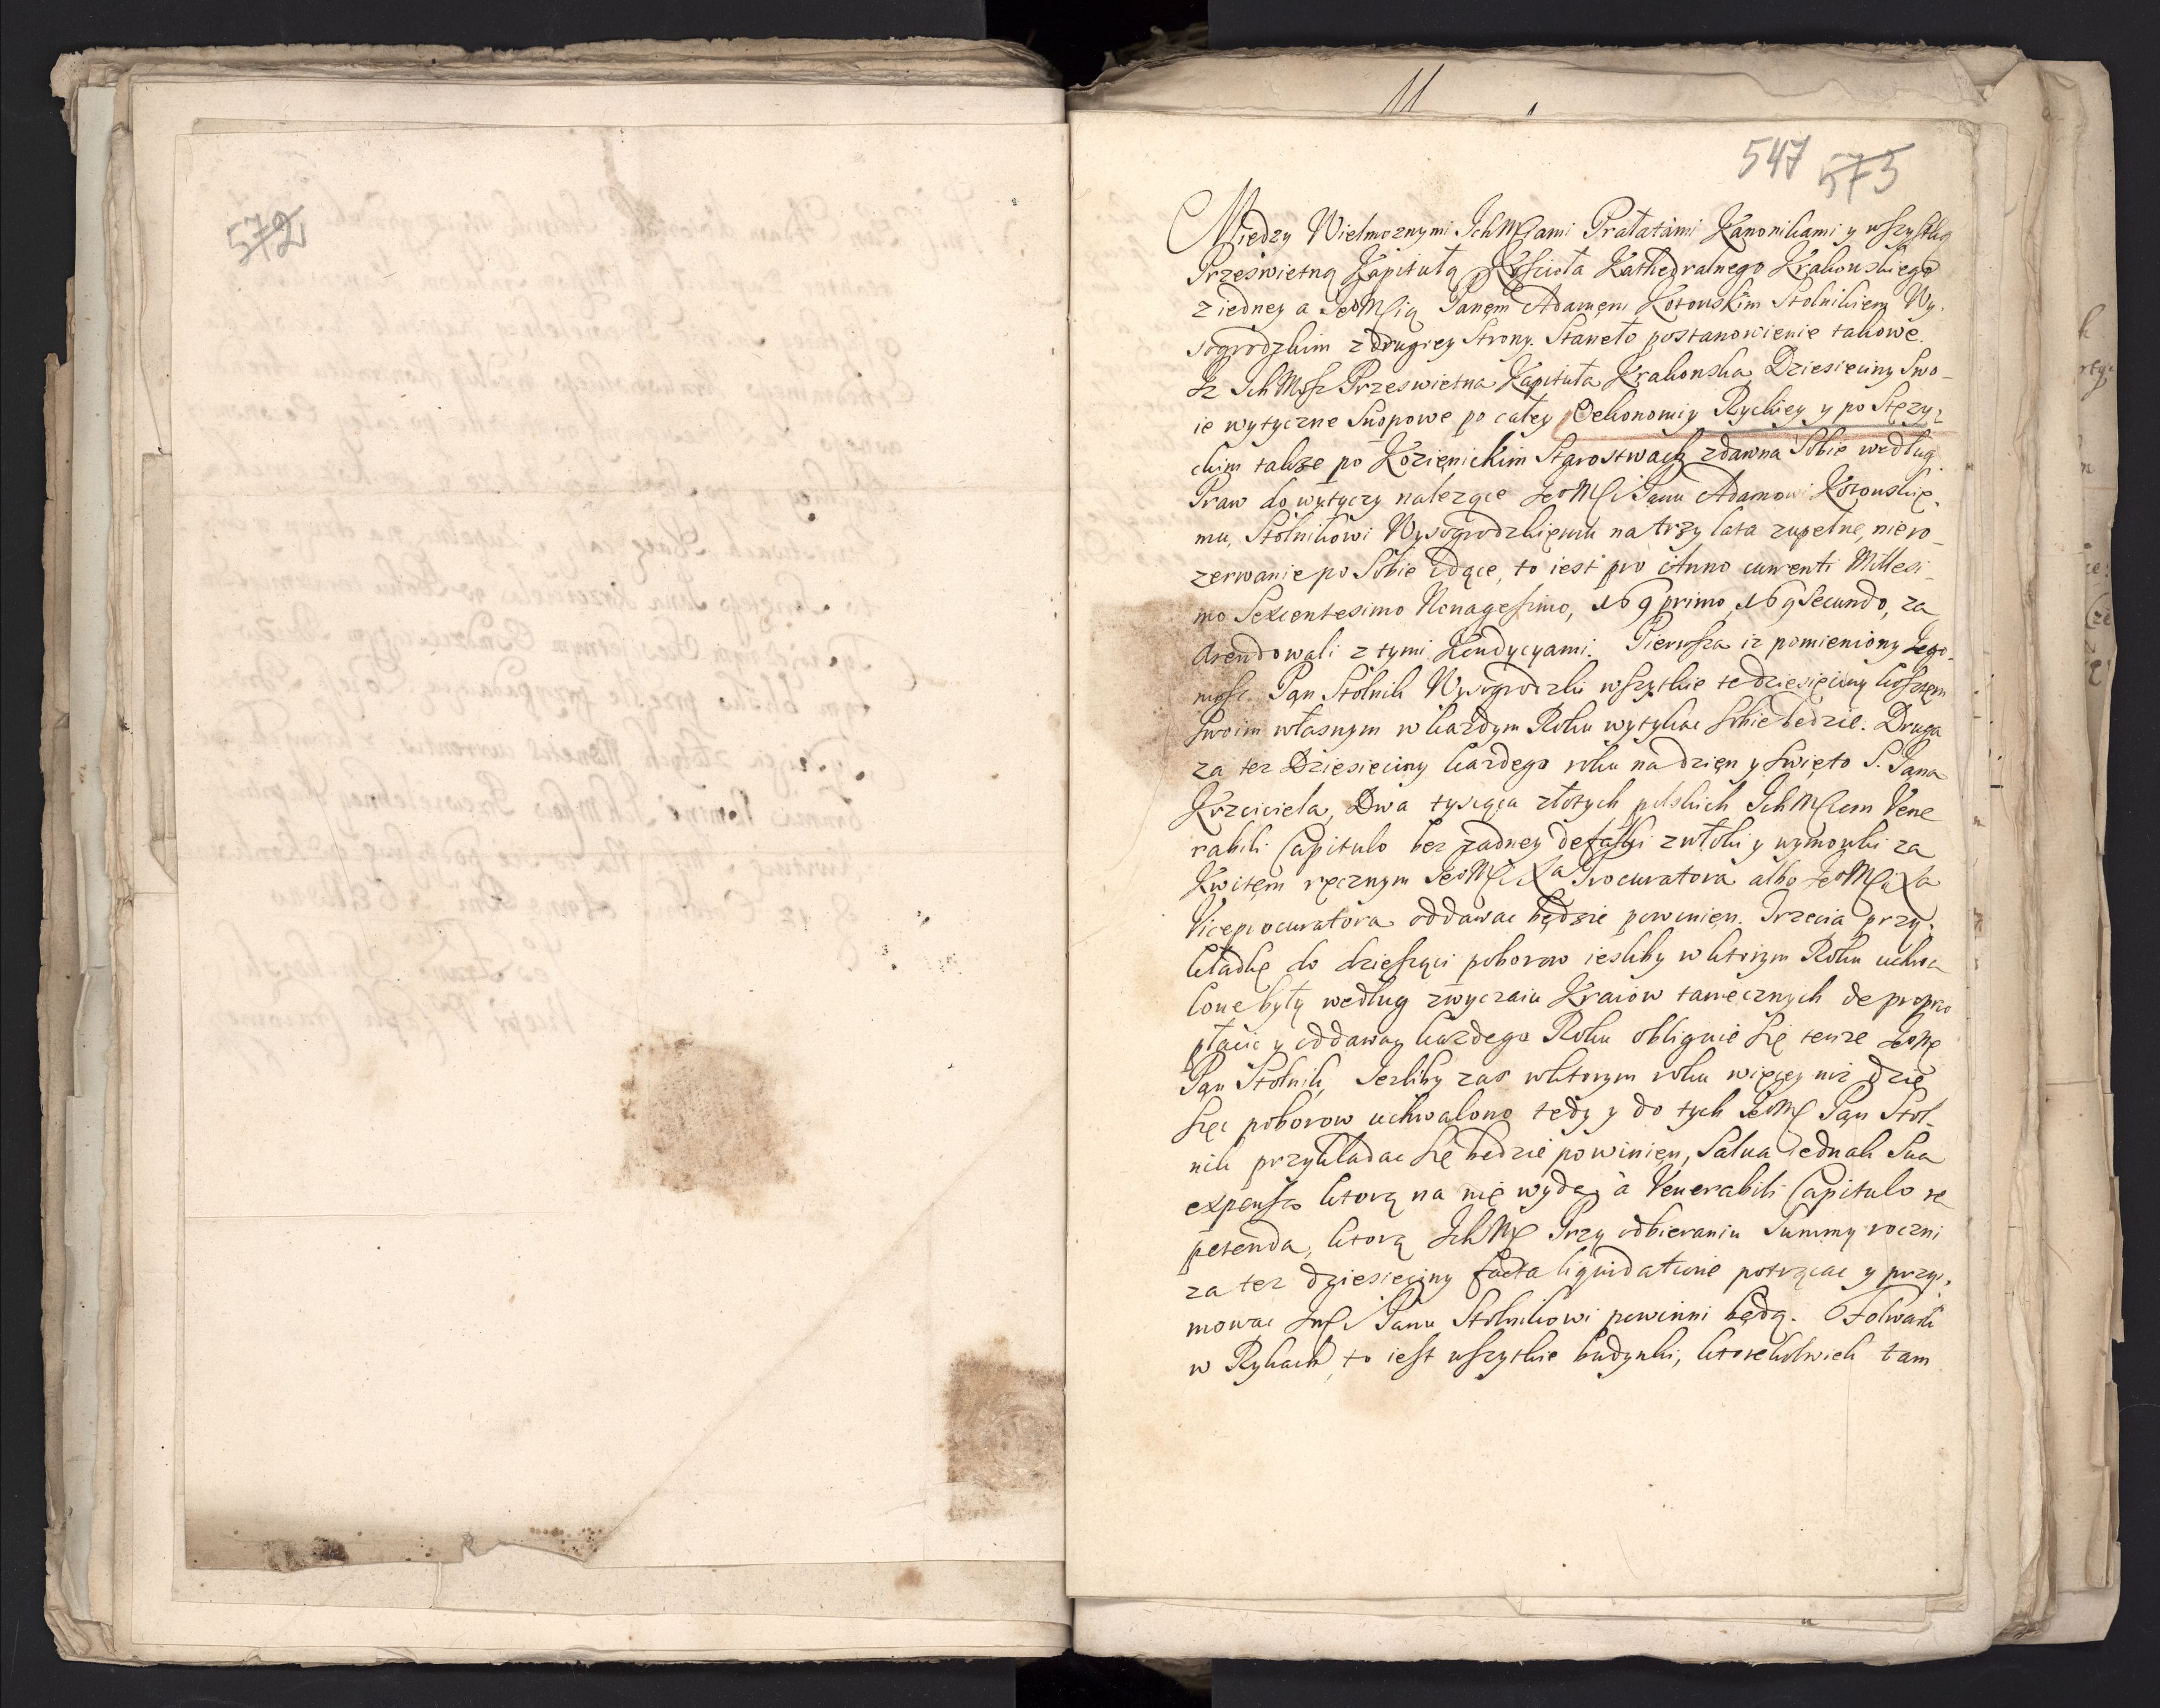 572
11
547 573
Między Wielmoznymi IchMćiami Prałatámi Kanonikami y wszystką
Prześwietną Kapitułą Kościoła Kathedralnego Krakowskiego
z iedney a JeoMcią Panęm Adamęm Kotowskim Stolnikiem Wy-
sogrodzkim z drugiey Strony. Staneło postanowienie takowe.
Iz IchMośc Przeswietna Kapituła Krakowska Dziesięciny Swo-
ie wytyczne Snopowe po całey Oekonomiy Ryckiey y po Stęzy-
ckim takze po Kozienickim Starostwach zdawna Sobie według
Praw do wytyczy nalezące JeoMći Panu Adamowi Kotowskie-
mu, Stolnikowi Wysogrodzkiemu na trzy lata zupełne, niero-
zerwanie po Sobie idące, to iest pro Anno currenti Millesi-
mo Sexcentesimo Nonagesimo, 169 primo, 169 Secundo, za
Arendowali z tymi Kondycyami. Pierwsza iz pomieniony Jego-
mość Pan Stolnik Wysogrodzki wszytkie te dziesięciny kosztem
Swoim własnym w kazdym Roku wytykac sobie bedzie. Druga
za tez Dziesieciny kazdego roku na dzien y Swięto S. Jana
Krzciciela, Dwa tysiąca złotych polskich IchMćiom Vene
rabili Capitulo bez zadney defalki zwłoki y wymowki za
Kwitem ręcznym JeoMći Xa Procuratora albo JeoMći Xa
Viceprocuratora oddawac będzie powinien. Trzecia przy-
kładkę do dziesząci poborow iesliby w ktorym Roku uchwa
lone były według zwyczaiu Kraiow tamecznych de proprio
płacic y oddaway kazdego Roku obliguie się tenze JeoMć
Pan Stolnik, Jezliby zas wktorym roku więcey niz dzie
sięc poborow uchwalono tedy y do tych JeoMć Pan Stol-
nik przykładac się bedzie powinien, Salua iednak Sua
expensa ktorą na nię wyda, à Venerabili Capitulo re
petenda, ktorą IchMć Przy odbieraniu Summy roczni
za tez dziesięciny facta liquidatione potrącac y przy-
mowac JmćPanu Stolnikowi powinni będą. Folwark
w Rykach to iest wszytkie budynki, ktorekolwiek tam